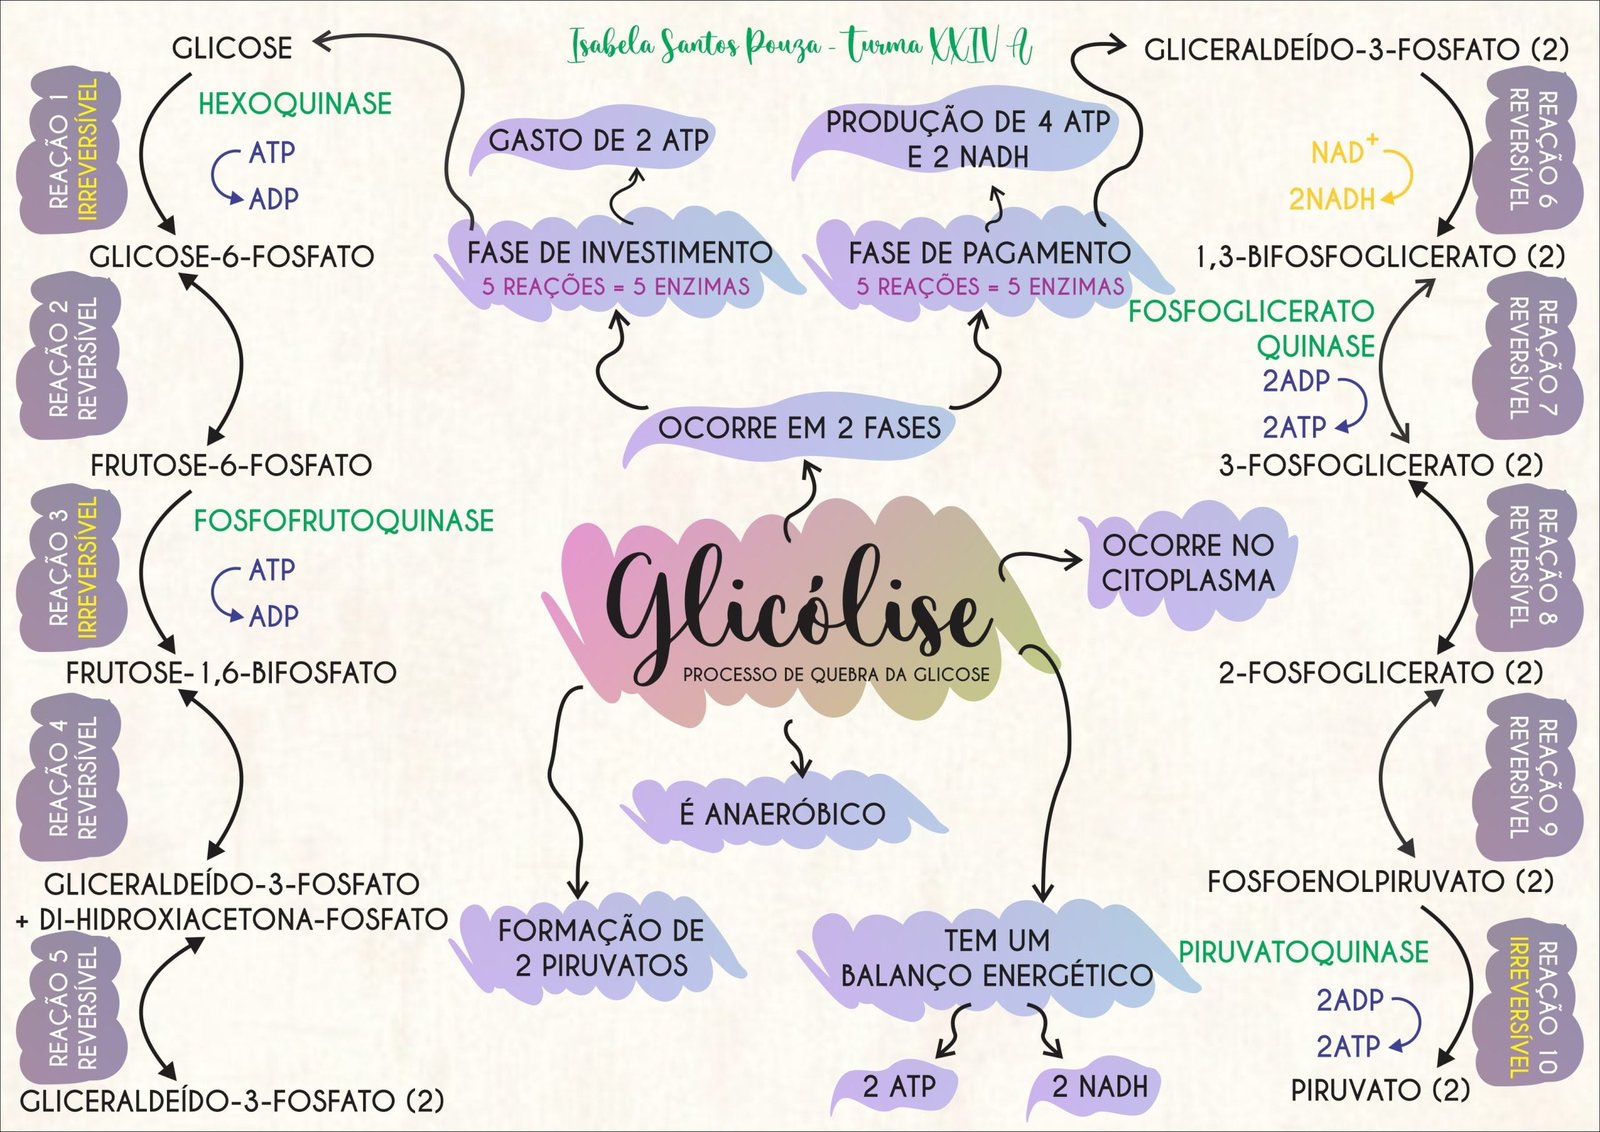 Isabela Santos Pouza - Turma XXIV A
GLICOSE
REAÇÃO 1
IRREVERSÍVEL
HEXOQUINASE
ATP
ADP
GLICOSE-6-FOSFATO
REAÇÃO 2
REVERSÍVEL
FRUTOSE-6-FOSFATO
REAÇÃO 3
IRREVERSÍVEL
FOSFOFRUTOQUINASE
ATP
ADP
FRUTOSE-1,6-BIFOSFATO
REAÇÃO 4
REVERSÍVEL
GLICERALDEÍDO-3-FOSFATO
+ DI-HIDROXIACETONA-FOSFATO
REAÇÃO 5
REVERSÍVEL
GLICERALDEÍDO-3-FOSFATO (2)
GASTO DE 2 ATP
FASE DE INVESTIMENTO
5 REAÇÕES = 5 ENZIMAS
PRODUÇÃO DE 4 ATP
E 2 NADH
FASE DE PAGAMENTO
5 REAÇÕES = 5 ENZIMAS
OCORRE EM 2 FASES
Glicólise
PROCESSO DE QUEBRA DA GLICOSE
OCORRE NO
CITOPLASMA
É ANAERÓBICO
FORMAÇÃO DE
2 PIRUVATOS
TEM UM
BALANÇO ENERGÉTICO
2 ATP
2 NADH
GLICERALDEÍDO-3-FOSFATO (2)
REAÇÃO 6
REVERSÍVEL
NAD+
2NADH
1,3-BIFOSFOGLICERATO (2)
REAÇÃO 7
REVERSÍVEL
FOSFOGLICERATO
QUINASE
2ADP
2ATP
3-FOSFOGLICERATO (2)
REAÇÃO 8
REVERSÍVEL
2-FOSFOGLICERATO (2)
REAÇÃO 9
REVERSÍVEL
FOSFOENOLPIRUVATO (2)
REAÇÃO 10
IRREVERSÍVEL
PIRUVATOQUINASE
2ADP
2ATP
PIRUVATO (2)